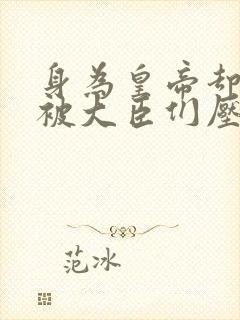 身為皇帝却
被大臣们壓
范冰